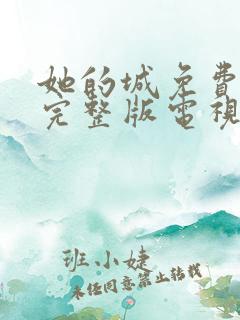 她的城免費
完整版電視
班小婕
未经同意禁止转载